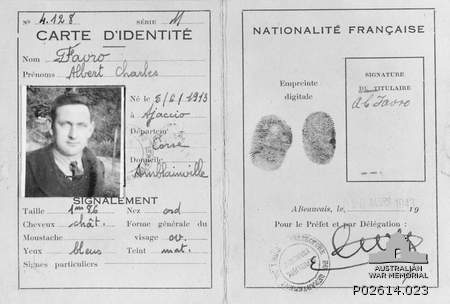 Nº 4.128 SÉRIE M
CARTE D'IDENTITÉ
Nom Favro
Prénoms Albert Charles
Né le 5/6/1913
à Ajaccio
Départem^t
Corse
Domicile
Amblainville
SIGNALEMENT
Taille 1m 86 Nez ord
Cheveux chât. Forme générale du
Moustache visage ov.
Yeux bleus Teint mat.
Signes particuliers
NATIONALITÉ FRANÇAISE
Empreinte
digitale
SIGNATURE
DU TITULAIRE
A C Favro
A Beauvais, le 19
Pour le Préfet et par Délégation :
AUSTRALIAN
WAR MEMORIAL
P02614.023